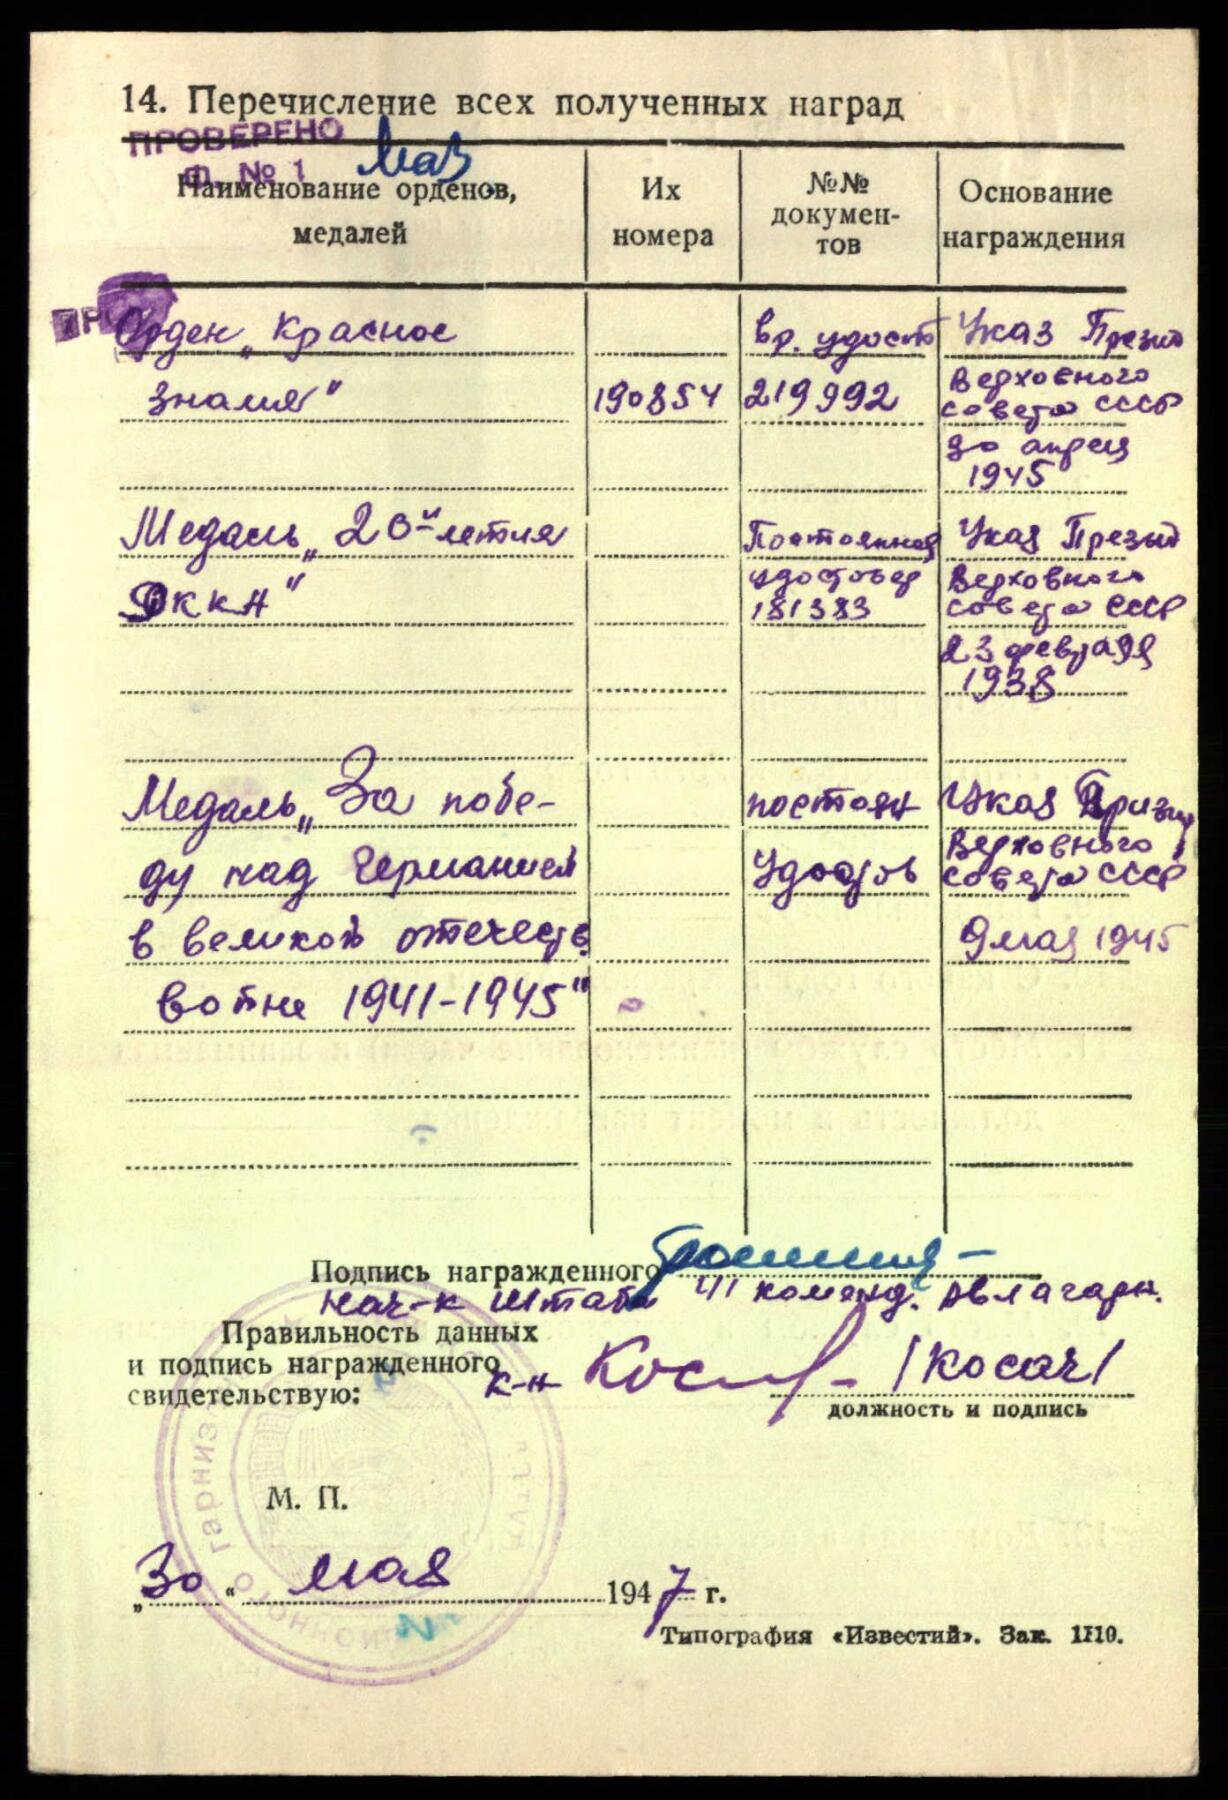 14. Перечисление всех полученных наград
ПРОВЕРЕНО
Ф. № 1
Наименование орденов, медалей
Их номера
№№ докумен-тов
Основание награждения
Орден „Красное
вр. удост
Указ Презид
Знамя"
190854
219992
Верховного
совета СССР
30 апреля
1945
Медаль „20-летия
Постоянное
Указ Презид
РККА"
удостовер
181383
Верховного
совета СССР
23 февраля
1938
Медаль „За побе-
постоян
Указ Призид
ду над Германией
удостов
Верховного
совета СССР
в великой отечеств.
9 мая 1945
войне 1941-1945"
Подпись награжденного
Нач-к штаба
коменд.
Правильность данных
и подпись награжденного
свидетельствую:
к-н
/Косач/
должность и подпись
М. П.
„30" мая 1947 г.
Типография «Известий». Зак. 1110.